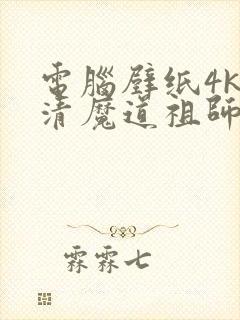 電腦壁纸4k
清魔道祖師
霖霖七